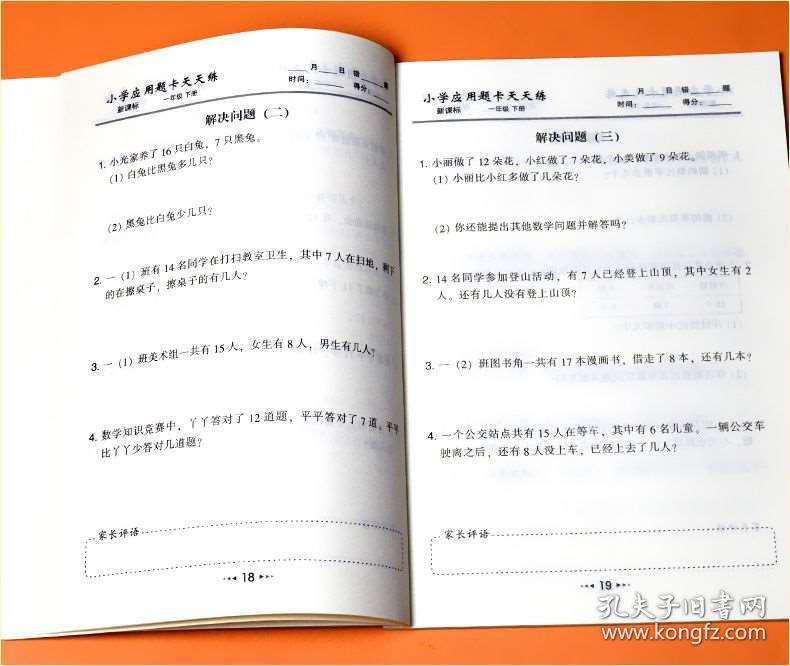 小学应用题卡天天练
新课标 一年级 下册
___月___日 错___题
时间：___ 得分：___
解决问题（二）
1. 小光家养了 16 只白兔，7 只黑兔。
（1）白兔比黑兔多几只？
（2）黑兔比白兔少几只？
2. 一（1）班有 14 名同学在打扫教室卫生，其中 7 人在扫地，剩下
的在擦桌子，擦桌子的有几人？
3. 一（1）班美术组一共有 15 人，女生有 8 人，男生有几人？
4. 数学知识竞赛中，丫丫答对了 12 道题，平平答对了 7 道。平平
比丫丫少答对几道题？
家长评语
18
小学应用题卡天天练
新课标 一年级 下册
___月___日 错___题
时间：___ 得分：___
解决问题（三）
1. 小丽做了 12 朵花，小红做了 7 朵花，小美做了 9 朵花。
（1）小丽比小红多做了几朵花？
（2）你还能提出其他数学问题并解答吗？
2. 14 名同学参加登山活动，有 7 人已经登上山顶，其中女生有 2
人。还有几人没有登上山顶？
3. 一（2）班图书角一共有 17 本漫画书，借走了 8 本，还有几本？
4. 一个公交站点共有 15 人在等车，其中有 6 名儿童。一辆公交车
驶离之后，还有 8 人没上车，已经上去了几人？
家长评语
19
孔夫子旧书网
www.kongfz.com